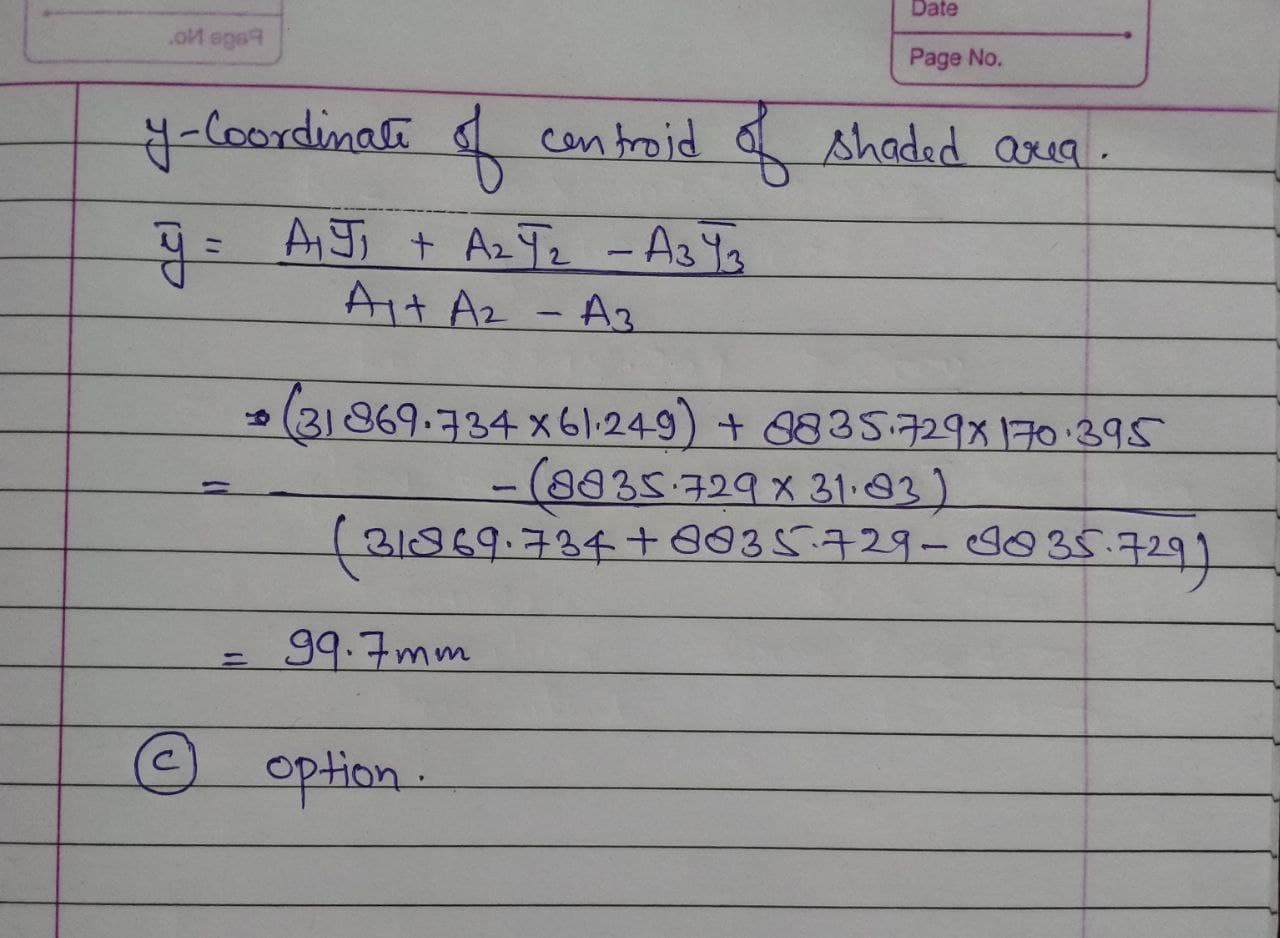 Page No.
Date
Page No.
y-Coordinate of centroid of shaded area.
ȳ = A₁ȳ₁ + A₂ȳ₂ - A₃ȳ₃
A₁ + A₂ - A₃
(31869.734 × 61.249) + 8835.729 × 170.395
= - (8835.729 × 31.83)
(31869.734 + 8835.729 - 8835.729)
= 99.7mm
(c) option.